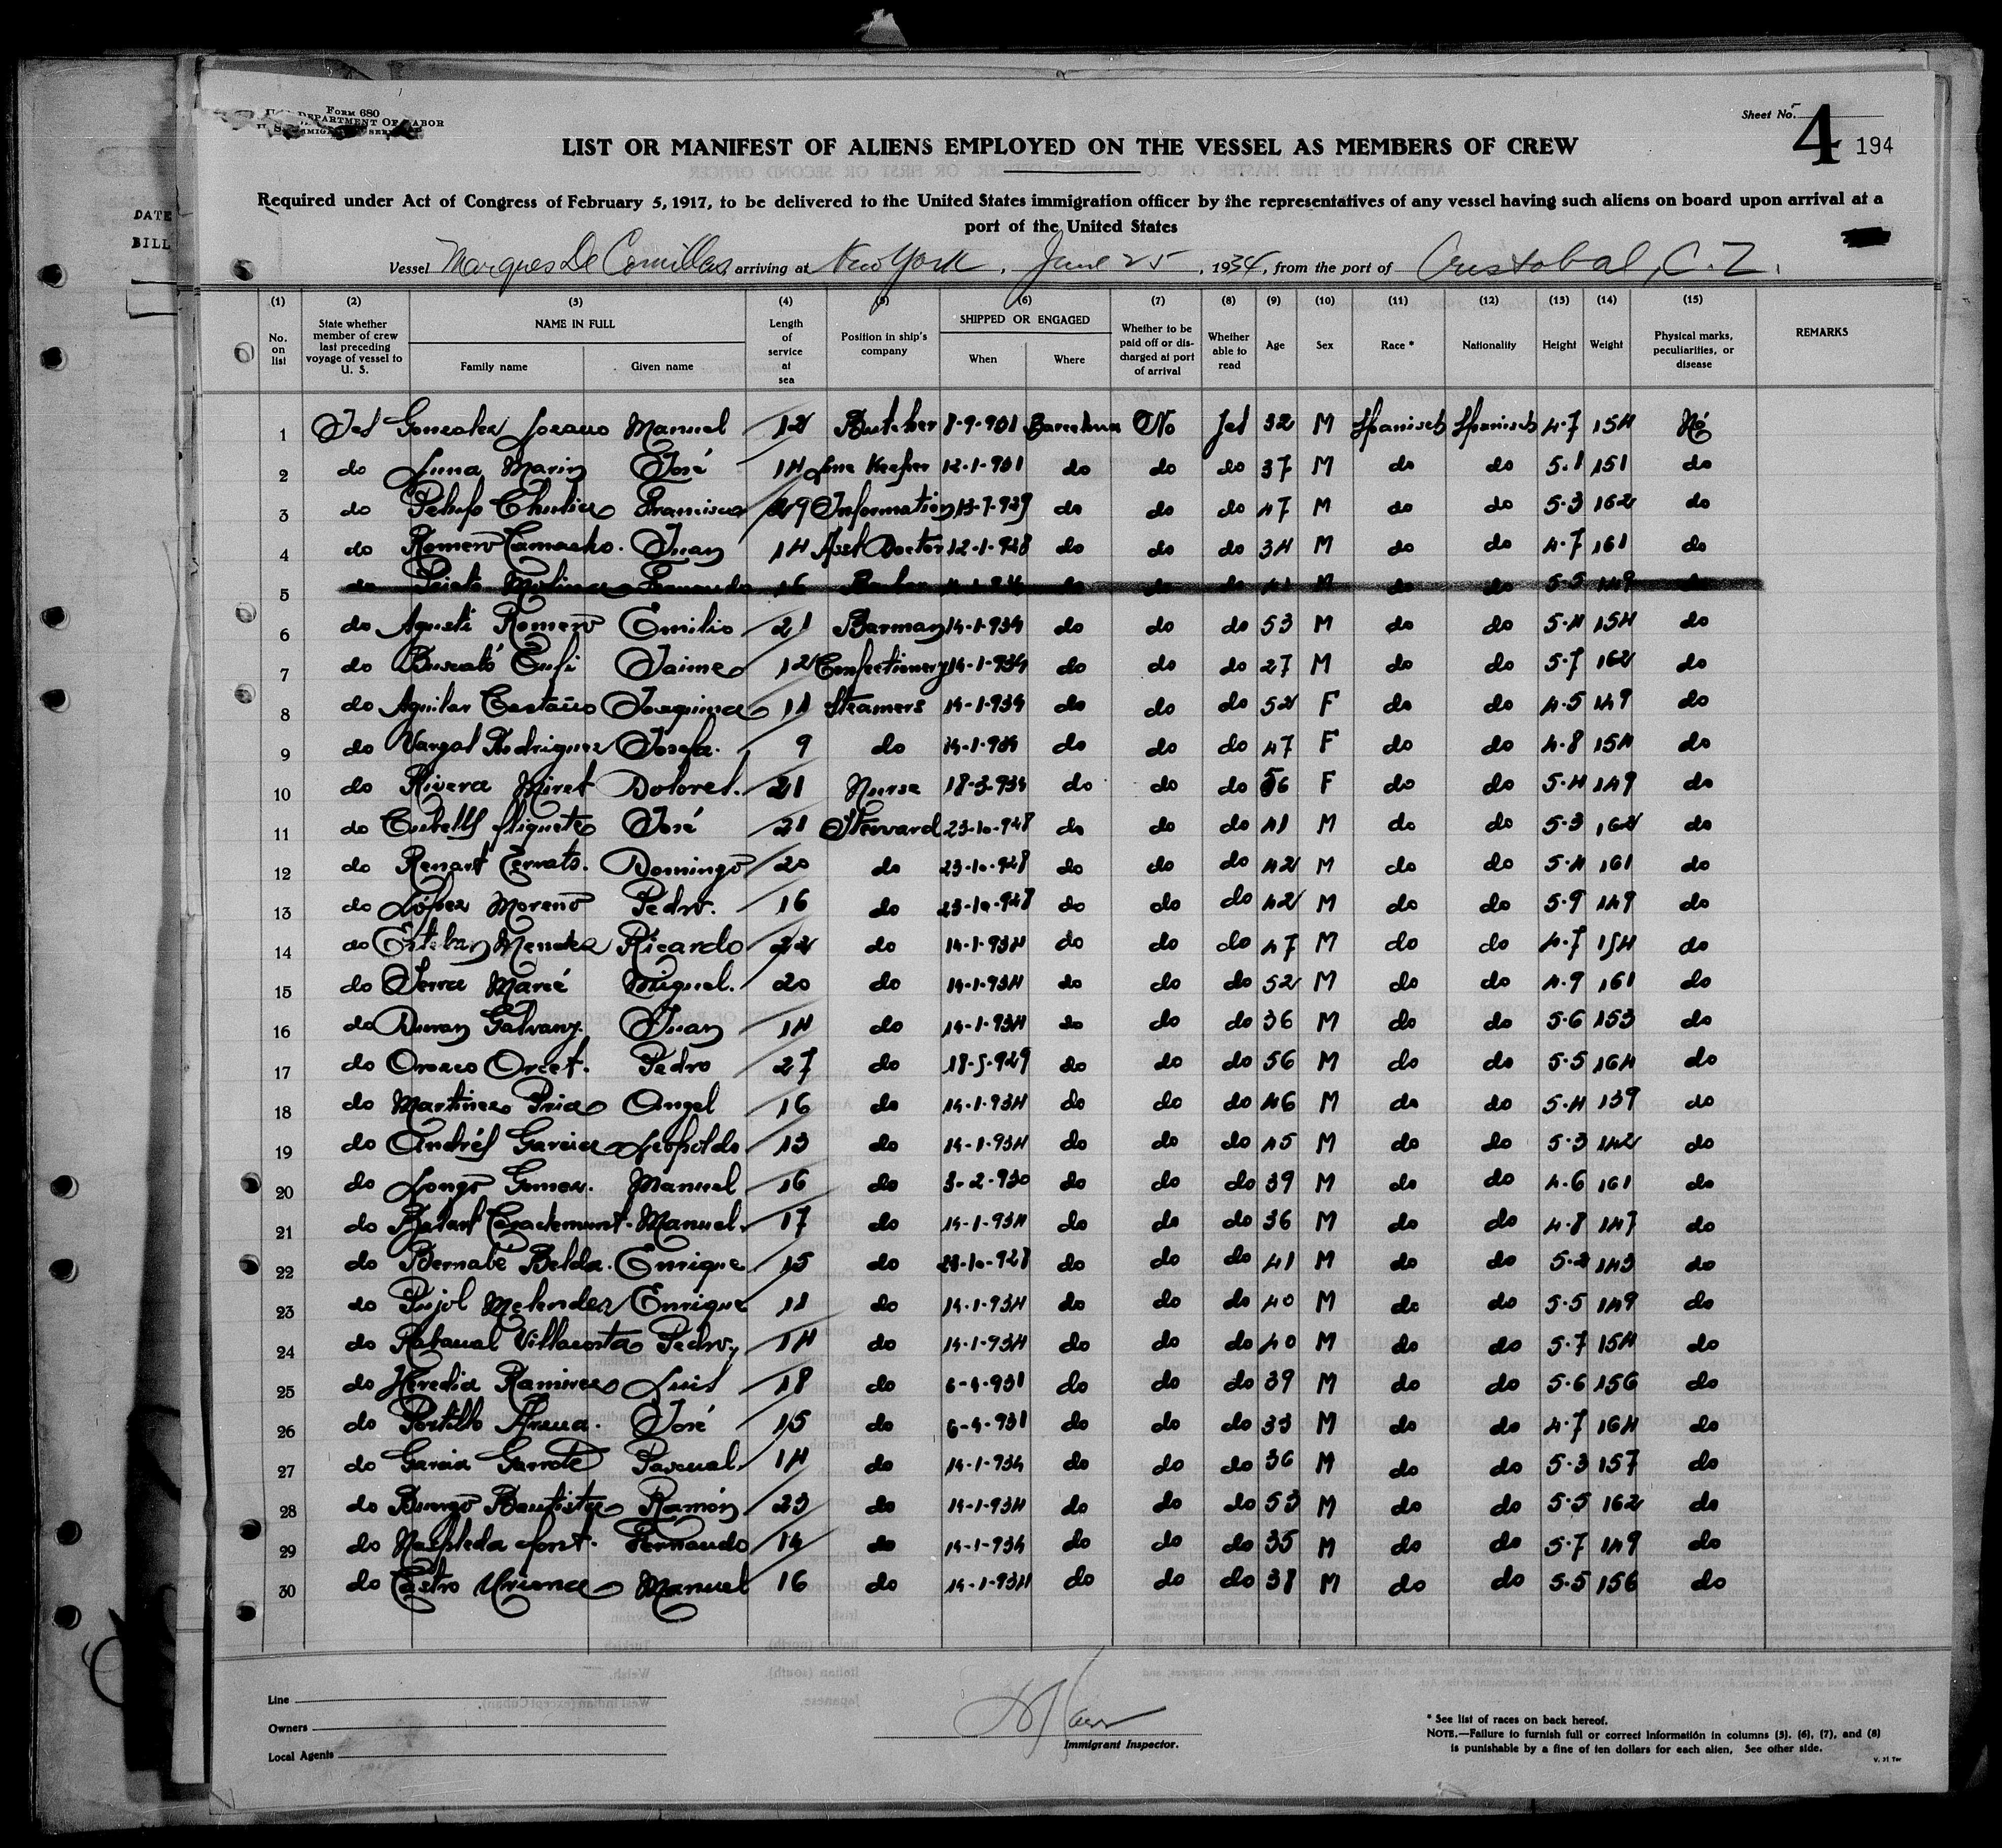 Form 680
DEPARTMENT OF LABOR
Sheet No. 4 194
LIST OR MANIFEST OF ALIENS EMPLOYED ON THE VESSEL AS MEMBERS OF CREW
Required under Act of Congress of February 5, 1917, to be delivered to the United States immigration officer by the representatives of any vessel having such aliens on board upon arrival at a
port of the United States
DATE
BILL
Vessel Marques De Comillas, arriving at New York, June 25, 1934, from the port of Cristobal, C.Z.
(1) (2) (3) (4) (5) (6) (7) (8) (9) (10) (11) (12) (13) (14) (15)
No. on list State whether member of crew last preceding voyage of vessel to U. S. NAME IN FULL Family name Given name Length of service at sea Position in ship's company SHIPPED OR ENGAGED When Where Whether to be paid off or discharged at port of arrival Whether able to read Age Sex Race * Nationality Height Weight Physical marks, peculiarities, or disease REMARKS
1 Gonzalez Manuel 12 Butcher 8-9-931 Barcelona No 32 M Spanisch Spanisch 4-7 154 Nó
2 do Luna Marin José 14 Keeper 12-1-931 do do do 37 M do do 5.1 151 do
3 do Francisco 29 Information do do do 47 M do do 5-3 162 do
4 do Romero Camacho. Juan 14 Doctor 12-1-928 do do do 34 M do do 4-7 161 do
5 do Prieto Molina Fernando 16 do do do 41 M do do 5-5 149 do
6 do Agusti Romero Emilio 21 Barman 14-1-934 do do do 53 M do do 5-4 154 do
7 do Jaime 12 Confectionery 14-1-934 do do do 27 M do do 5-7 162 do
8 do Aguilar Castaño Joaquina 11 Steamers 14-1-934 do do do 52 F do do 4-5 149 do
9 do Vargas Rodriguez Josefa. 9 do 14-1-934 do do do 47 F do do 4-8 154 do
10 do Rivera Miret Dolores. 21 Nurse 18-3-934 do do do 56 F do do 5-4 149 do
11 do Cubells José 21 Stevvard 23-10-928 do do do 41 M do do 5-3 162 do
12 do Renart Cerrato. Domingo 20 do 23-10-928 do do do 42 M do do 5-4 161 do
13 do López Moreno Pedro. 16 do 23-10-928 do do do 42 M do do 5-9 149 do
14 do Esteban Mendez Ricardo 22 do 14-1-934 do do do 47 M do do 4-7 154 do
15 do Serra Marcé Miguel. 20 do 14-1-934 do do do 52 M do do 4-9 161 do
16 do Duran Galvany. Juan 14 do 14-1-934 do do do 36 M do do 5-6 153 do
17 do Orozco Orcet. Pedro 27 do 18-5-929 do do do 56 M do do 5-5 164 do
18 do Martinez Angel 16 do 14-1-934 do do do 46 M do do 5-4 139 do
19 do Andrés Garcia Leopoldo 13 do 14-1-934 do do do 45 M do do 5-3 142 do
20 do Longo Gomez. Manuel 16 do 3-2-930 do do do 39 M do do 4-6 161 do
21 do Manuel. 17 do 14-1-934 do do do 36 M do do 4-8 147 do
22 do Bernabe Belda. Enrique 15 do 23-10-928 do do do 41 M do do 5-2 143 do
23 do Pujol Melendez Enrique 11 do 14-1-934 do do do 40 M do do 5-5 149 do
24 do Rabanal Villacorta Pedro. 14 do 14-1-934 do do do 40 M do do 5-7 154 do
25 do Heredia Ramirez Luis 18 do 6-4-931 do do do 39 M do do 5-6 156 do
26 do Portillo José 15 do 6-4-931 do do do 33 M do do 4-7 164 do
27 do Garcia Garrote Pascual. 14 do 14-1-934 do do do 36 M do do 5-3 157 do
28 do Bautista Ramón 23 do 14-1-934 do do do 53 M do do 5-5 162 do
29 do Font. Fernando 14 do 14-1-934 do do do 35 M do do 5-7 149 do
30 do Castro Manuel 16 do 14-1-934 do do do 38 M do do 5-5 156 do
Line
Owners
Local Agents
Immigrant Inspector.
* See list of races on back hereof.
NOTE.—Failure to furnish full or correct information in columns (3), (6), (7), and (8)
is punishable by a fine of ten dollars for each alien. See other side.